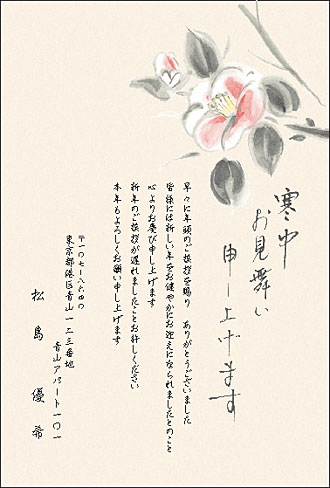 寒中
お見舞い
申し上げます
早々に年頭のご挨拶を賜り　ありがとうございました
皆様には新しい年をお健やかにお迎えになられましたとのこと
心よりお慶び申し上げます
新年のご挨拶が遅れましたことお許しください
本年もよろしくお願い申し上げます
〒一〇七-八六四〇
東京都港区青山一-二三番地
青山アパート一〇一
松島　優希